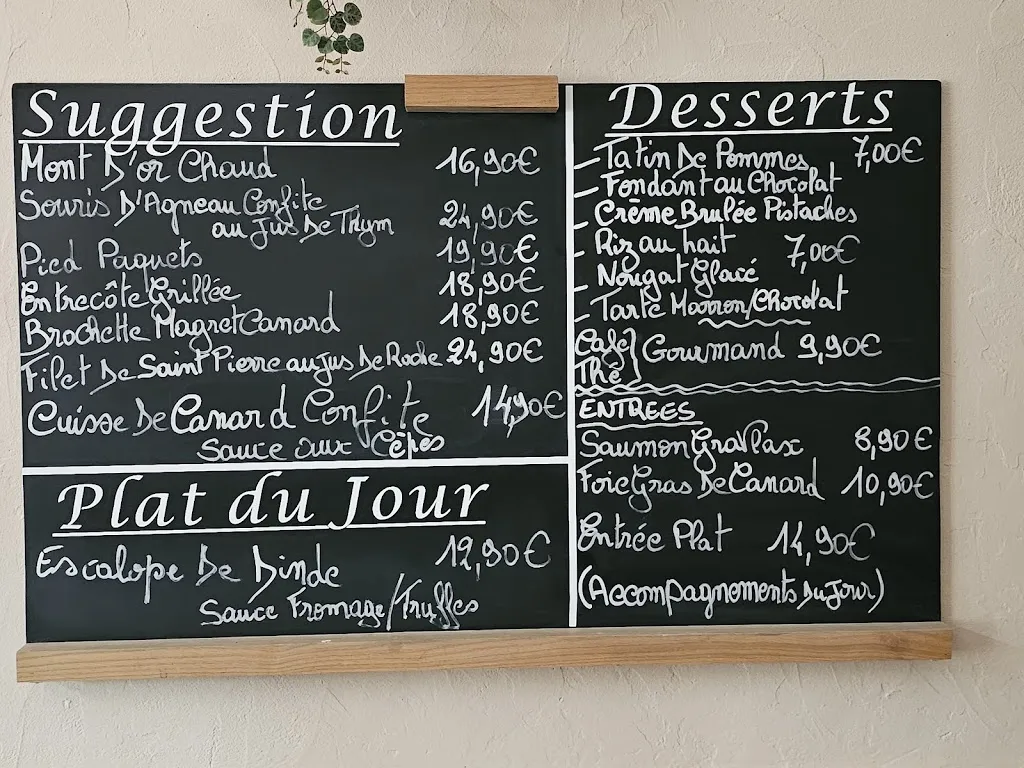 Suggestion
Mont D'or Chaud 16,90€
Souris D'Agneau Confite
au Jus De Thym 24,90€
Pied Paquets 19,90€
Entrecôte Grillée 18,90€
Brochette Magret Canard 18,90€
Filet De Saint Pierre au Jus De Roche 24,90€
Cuisse De Canard Confite 14,90€
Sauce aux Cèpes
Plat du Jour
Escalope De Dinde 12,90€
Sauce Fromage/Truffes
Desserts
- Tatin De Pommes 7,00€
- Fondant au Chocolat
- Crème Brulée Pistaches
- Riz au lait 7,00€
- Nougat Glacé
- Tarte Marron/Chocolat
Café
Thé } Gourmand 9,90€
ENTREES
Saumon Gravlax 8,90€
Foie Gras De Canard 10,90€
Entrée Plat 14,90€
(Accompagnements Du Jour)